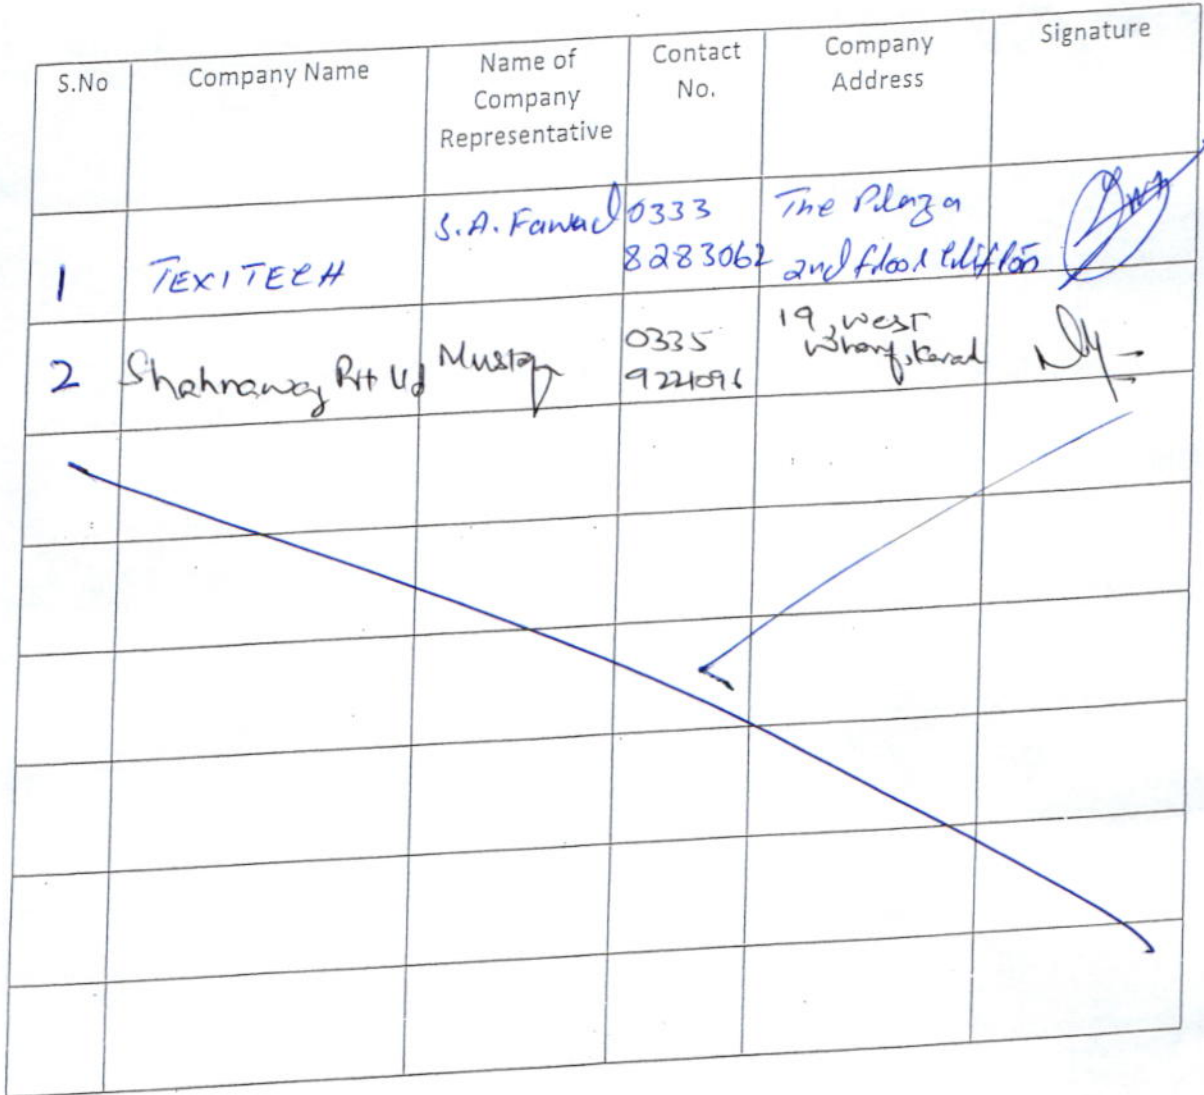 S.No
Company Name
Name of
Company
Representative
Contact
No.
Company
Address
Signature
1
TEXITECH
S.A. Fawad
0333
8283062
The Plaza
2nd floor Clifton
2
Shahnawaz Pvt Ltd
Mustaq
0335
9221096
19, west
wharf,